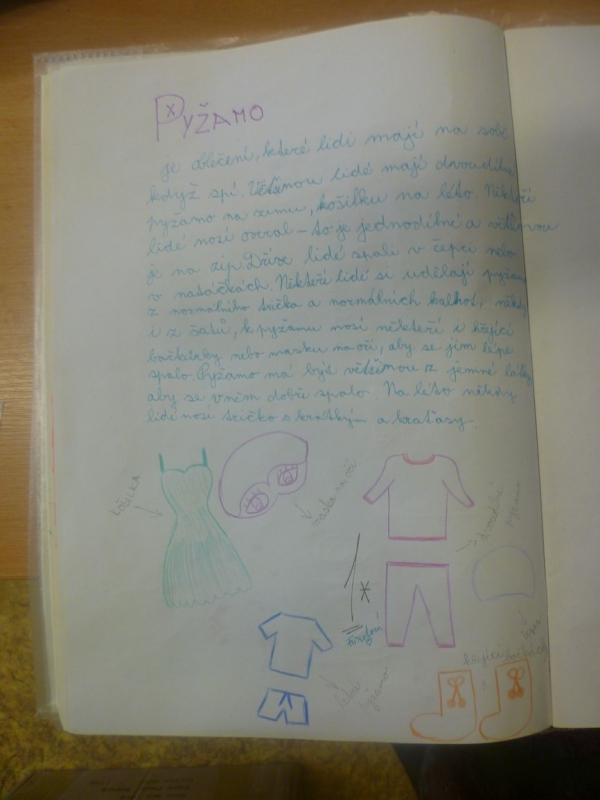 PYŽAMO
je oblečení, které lidi mají na sobě
když spí. Většinou lidé mají dvoudílné
pyžamo na zimu, košilku na léto. Někteří
lidé nosí overal - to je jednodílné a většinou
je na zip. Dříve lidé spali v čepci nebo
v natáčkách. Někteří lidé si udělají pyžamo
z normálního trička a normálních kalhot, někdy
i z šatů, k pyžamu nosí někteří i hřející
bačkůrky nebo masku na oči, aby se jim lépe
spalo. Pyžamo má být většinou z jemné látky,
aby se v něm dobře spalo. Na léto někdy
lidi nosí tričko s krátkým a kraťasy.
košilka
maska na oči
dvoudílné
pyžamo
1*
letní
pyžamo
hřející